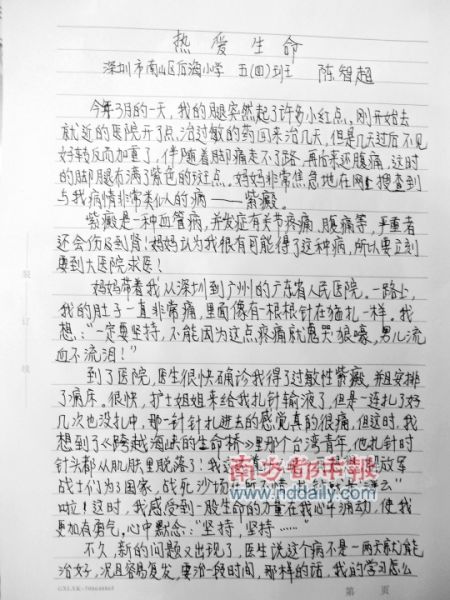 热爱生命
深圳市南山区后海小学 五(四)班 陈智超
今年3月的一天，我的腿突然起了许多小红点。刚开始去
就近的医院开了点治过敏的药回来治几天，但是几天过后不见
好转反而加重了，伴随着脚痛走不了路，再后来还腹痛，这时
的脚腿布满了紫色的斑点。妈妈非常焦急地在网上搜查到
与我病情非常类似的病——紫癜。
紫癜是一种血管病，并发症有关节疼痛、腹痛等，严重者
还会伤及到肾！妈妈认为我很有可能得了这种病，所以要立刻
要到大医院求医！
妈妈带着我从深圳到广州的广东省人民医院。一路上，
我的肚子一直非常痛，里面像有一根根针在猛扎一样。我
想：“一定要坚持，不能因为这点疼痛就鬼哭狼嚎，男儿流
血不流泪！”
到了医院，医生很快确诊我得了过敏性紫癜，并且安排
了病床。很快，护士姐姐来给我扎针输液了，但是一连扎了好
几次也没扎中，那一针针扎进去的感觉真的很痛，但这时，我
想到了《跨越海峡的生命桥》里那个台湾青年，他扎针时
针头都从肌肤里脱落了！我
南方都市报
放军
战士们为了国家，战死沙场
www.nddaily.com
么”
啦！这时，我感受到一股生命的力量在我心中涌动，使我
更加有勇气，心中默念：“坚持，坚持……”
不久，新的问题又出现了，医生说这个病不是一两天就能
治好，况且容易复发，要治一段时间，那样的话，我的学习怎么
页
装 订 线